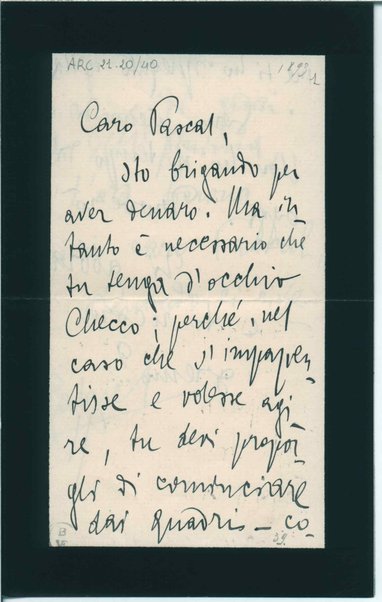 ARC 21. 20/40
Caro Pascal,
sto brigando per
aver denaro. Ma in
tanto è necessario che
tu tenga d'occhio
Checco: perché, nel
caso che s'impazien
tisse e volesse agi
re, tu devi propor
gli di cominciare
dai quadri – co